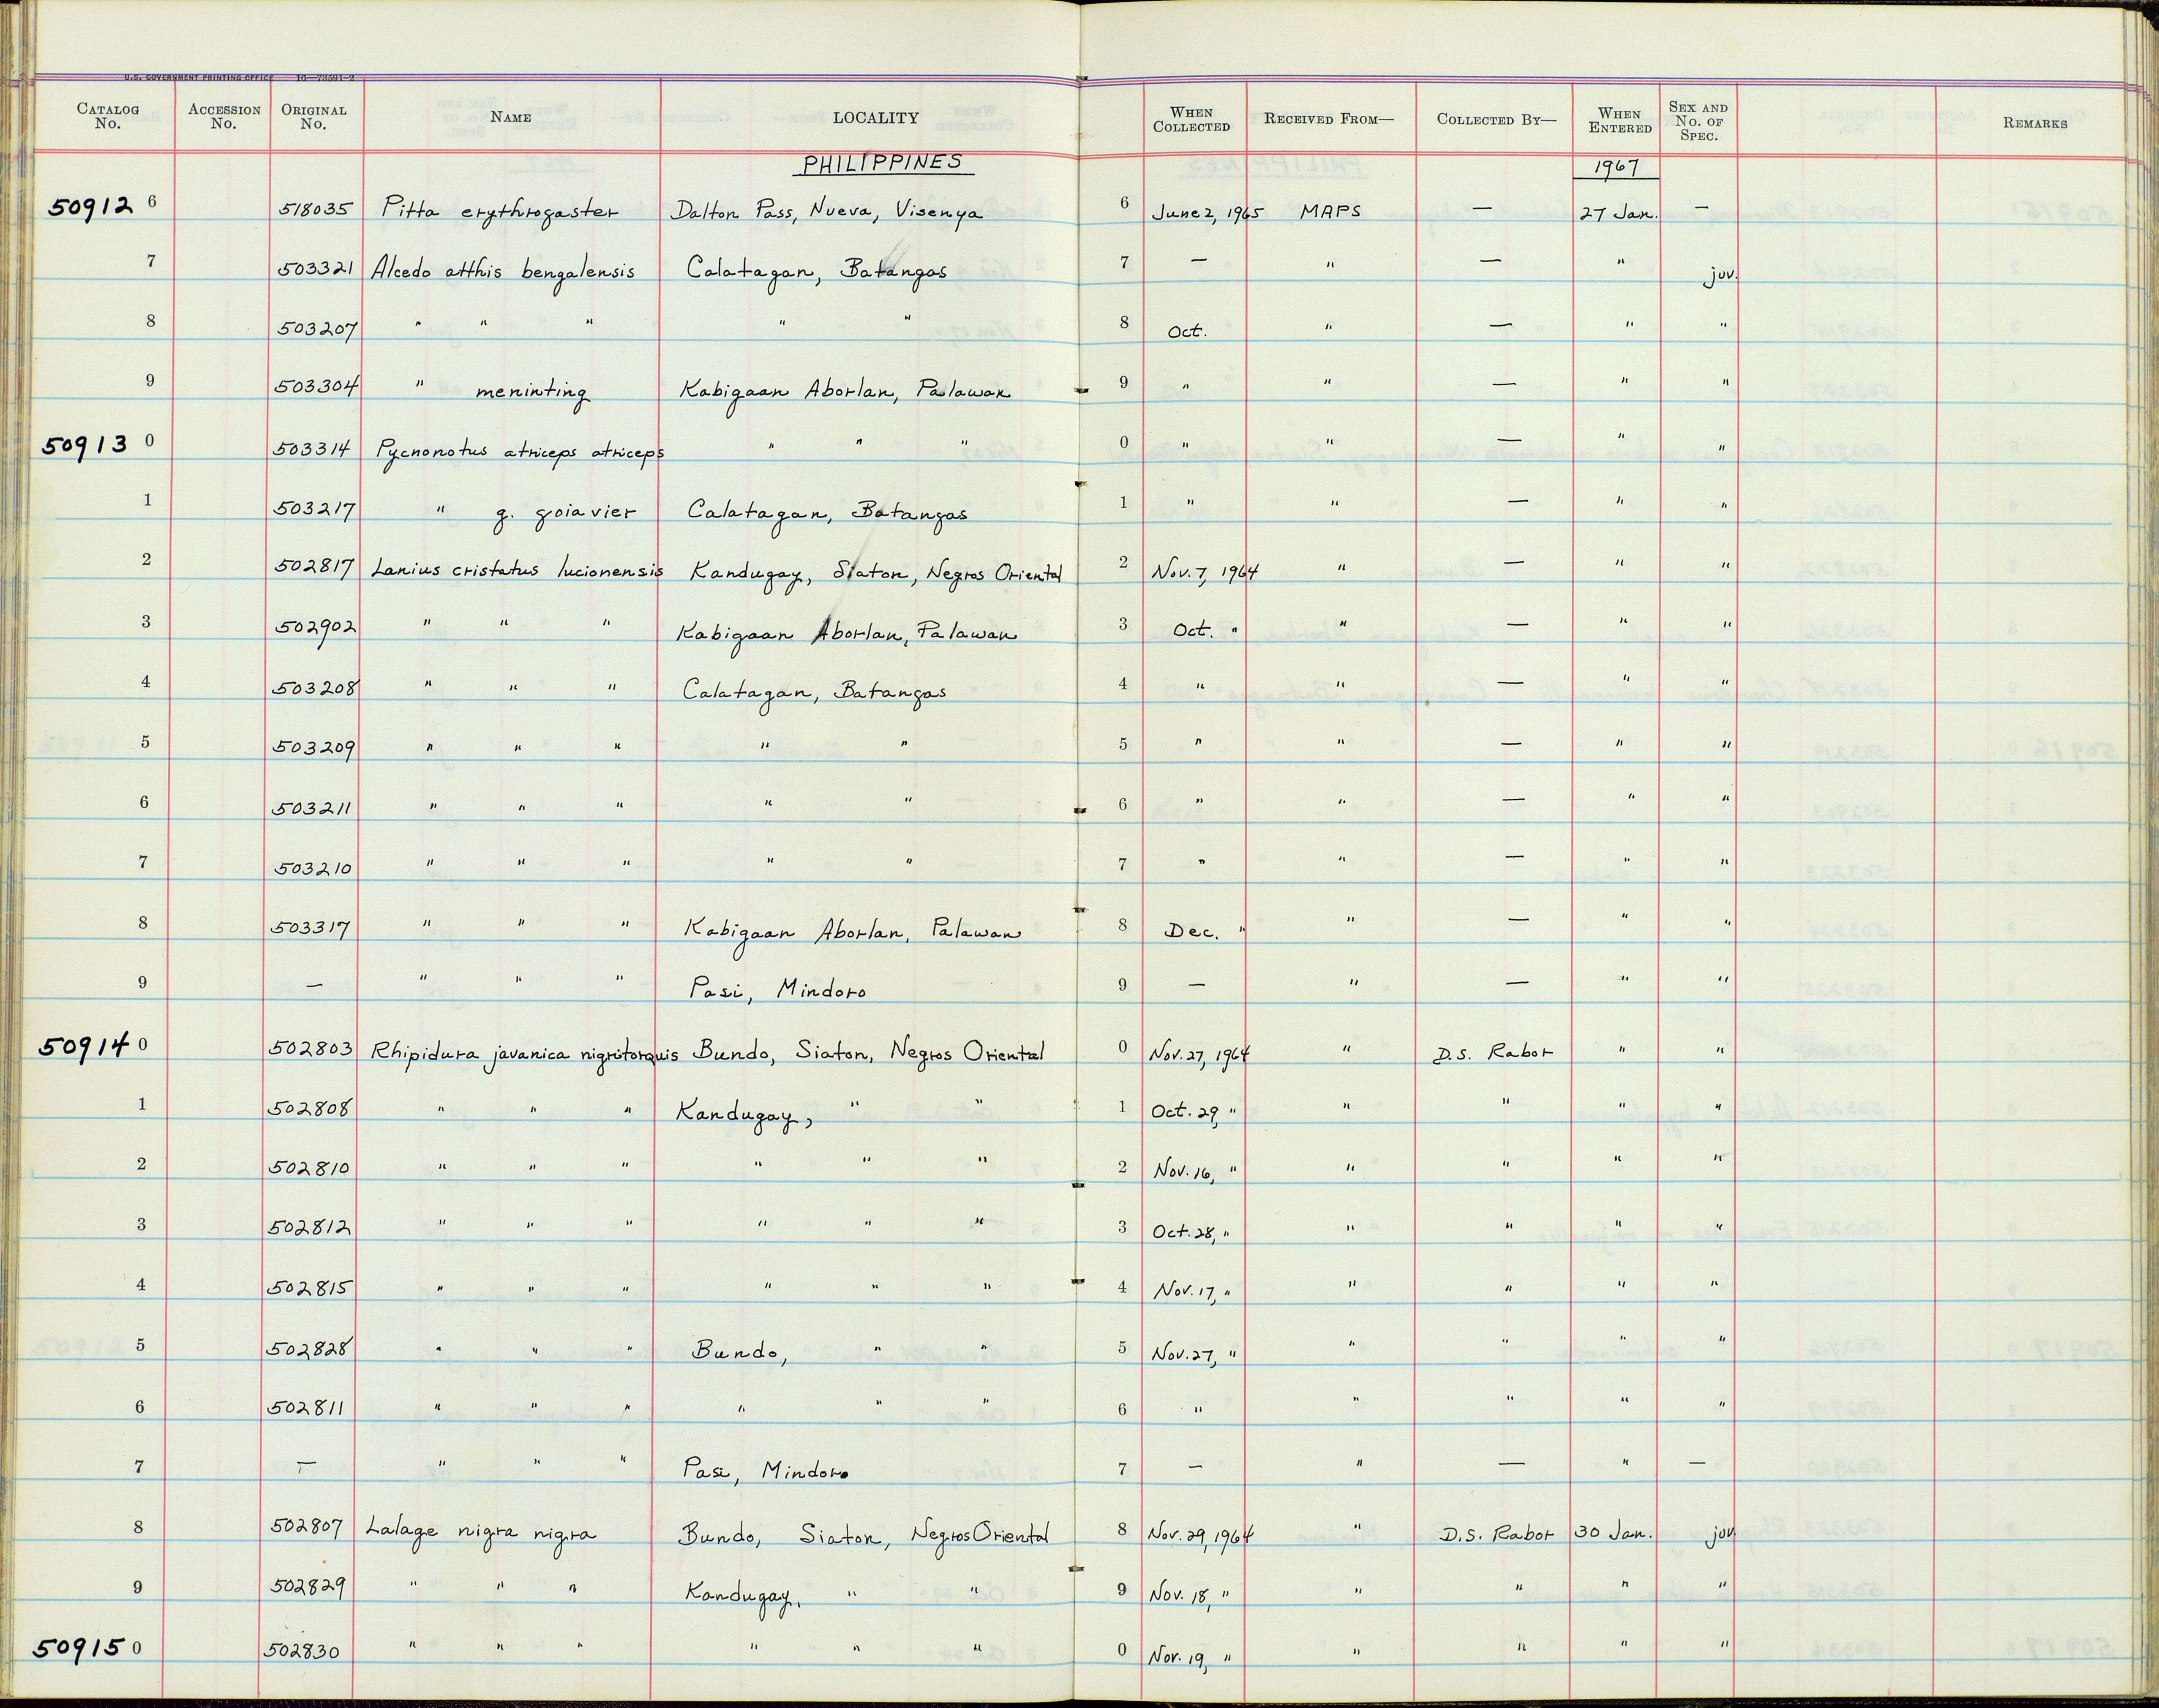 U.S. GOVERNMENT PRINTING OFFICE 16—79591-2
CATALOG No. ACCESSION No. ORIGINAL No. NAME LOCALITY WHEN COLLECTED RECEIVED FROM— COLLECTED BY— WHEN ENTERED SEX AND No. OF SPEC. REMARKS
PHILIPPINES 1967
50912 6 518035 Pitta erythrogaster Dalton Pass, Nueva, Visenya 6 June 2, 1965 MAPS — 27 Jan. —
7 503321 Alcedo atthis bengalensis Calatagan, Batangas 7 — " — " juv.
8 503207 " " " " " 8 Oct. " — " "
9 503304 " meninting Kabigaan Aborlan, Palawan 9 " " — " "
50913 0 503314 Pycnonotus atriceps atriceps " " " 0 " " — " "
1 503217 " g. goiavier Calatagan, Batangas 1 " " — " "
2 502817 Lanius cristatus lucionensis Kandugay, Siaton, Negros Oriental 2 Nov. 7, 1964 " — " "
3 502902 " " " Kabigaan Aborlan, Palawan 3 Oct. " " — " "
4 503208 " " " Calatagan, Batangas 4 " " — " "
5 503209 " " " " " 5 " " — " "
6 503211 " " " " " 6 " " — " "
7 503210 " " " " " 7 " " — " "
8 503317 " " " Kabigaan Aborlan, Palawan 8 Dec. " " — " "
9 — " " " Pasi, Mindoro 9 — " — " "
50914 0 502803 Rhipidura javanica nigritorquis Bundo, Siaton, Negros Oriental 0 Nov. 27, 1964 " D.S. Rabor " "
1 502808 " " " Kandugay, " " 1 Oct. 29, " " " " "
2 502810 " " " " " " 2 Nov. 16, " " " " "
3 502812 " " " " " " 3 Oct. 28, " " " " "
4 502815 " " " " " " 4 Nov. 17, " " " " "
5 502828 " " " Bundo, " " 5 Nov. 27, " " " " "
6 502811 " " " " " " 6 " " " " "
7 — " " " Pasi, Mindoro 7 — " — " —
8 502807 Lalage nigra nigra Bundo, Siaton, Negros Oriental 8 Nov. 29, 1964 " D.S. Rabor 30 Jan. juv.
9 502829 " " " Kandugay, " " 9 Nov. 18, " " " " "
50915 0 502830 " " " " " " 0 Nov. 19, " " " " "